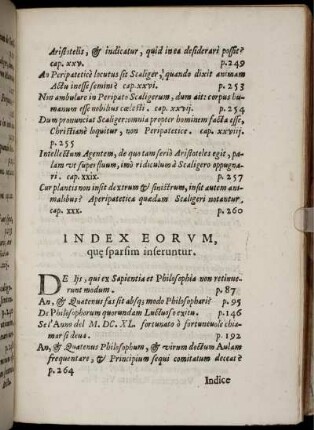 Aristotelis, & indicatur, quid in ea desiderari possit?
cap. xxv. p. 249
An Peripateticè locutus sit Scaliger, quando dixit animam
Actu inesse semini? cap. xxvi. p. 253
Non ambulare in Peripato Scaligerum, dum ait: corpus hu-
manum esse nobilius cœlesti. cap. xxvij. p. 254
Dum pronunciat Scaliger: omnia propter hominem facta esse,
Christianè loquitur, non Peripateticè. cap. xxviij.
p. 255
Intellectum Agentem, de quo tam seriò Aristoteles egit, pa-
lam vt superfluum, imò ridiculum à Scaligero oppugna-
ri. cap. xxix. p. 257
Cur plantis non insit dextrum & sinistrum, insit autem ani-
malibus? A peripatetica quædam Scaligeri notantur.
cap. xxx. p. 260
INDEX EORVM,
quę sparsim inseruntur.
DE Iis, qui ex Sapientia et Philosophia non retinue-
runt modum. p. 87
An, & Quatenus fas sit absq; modo Philosophari? p. 95
De Philosophorum quorundam Luctuoso exitu. p. 146
Se l'Anno del M. DC. XL. fortunato ò fortuneuole chia-
mar si deua. p. 192
An, & Quatenus Philosophum, & virum doctum Aulam
frequentare, & Principium sequi comitatum deceat?
p. 264
Indice